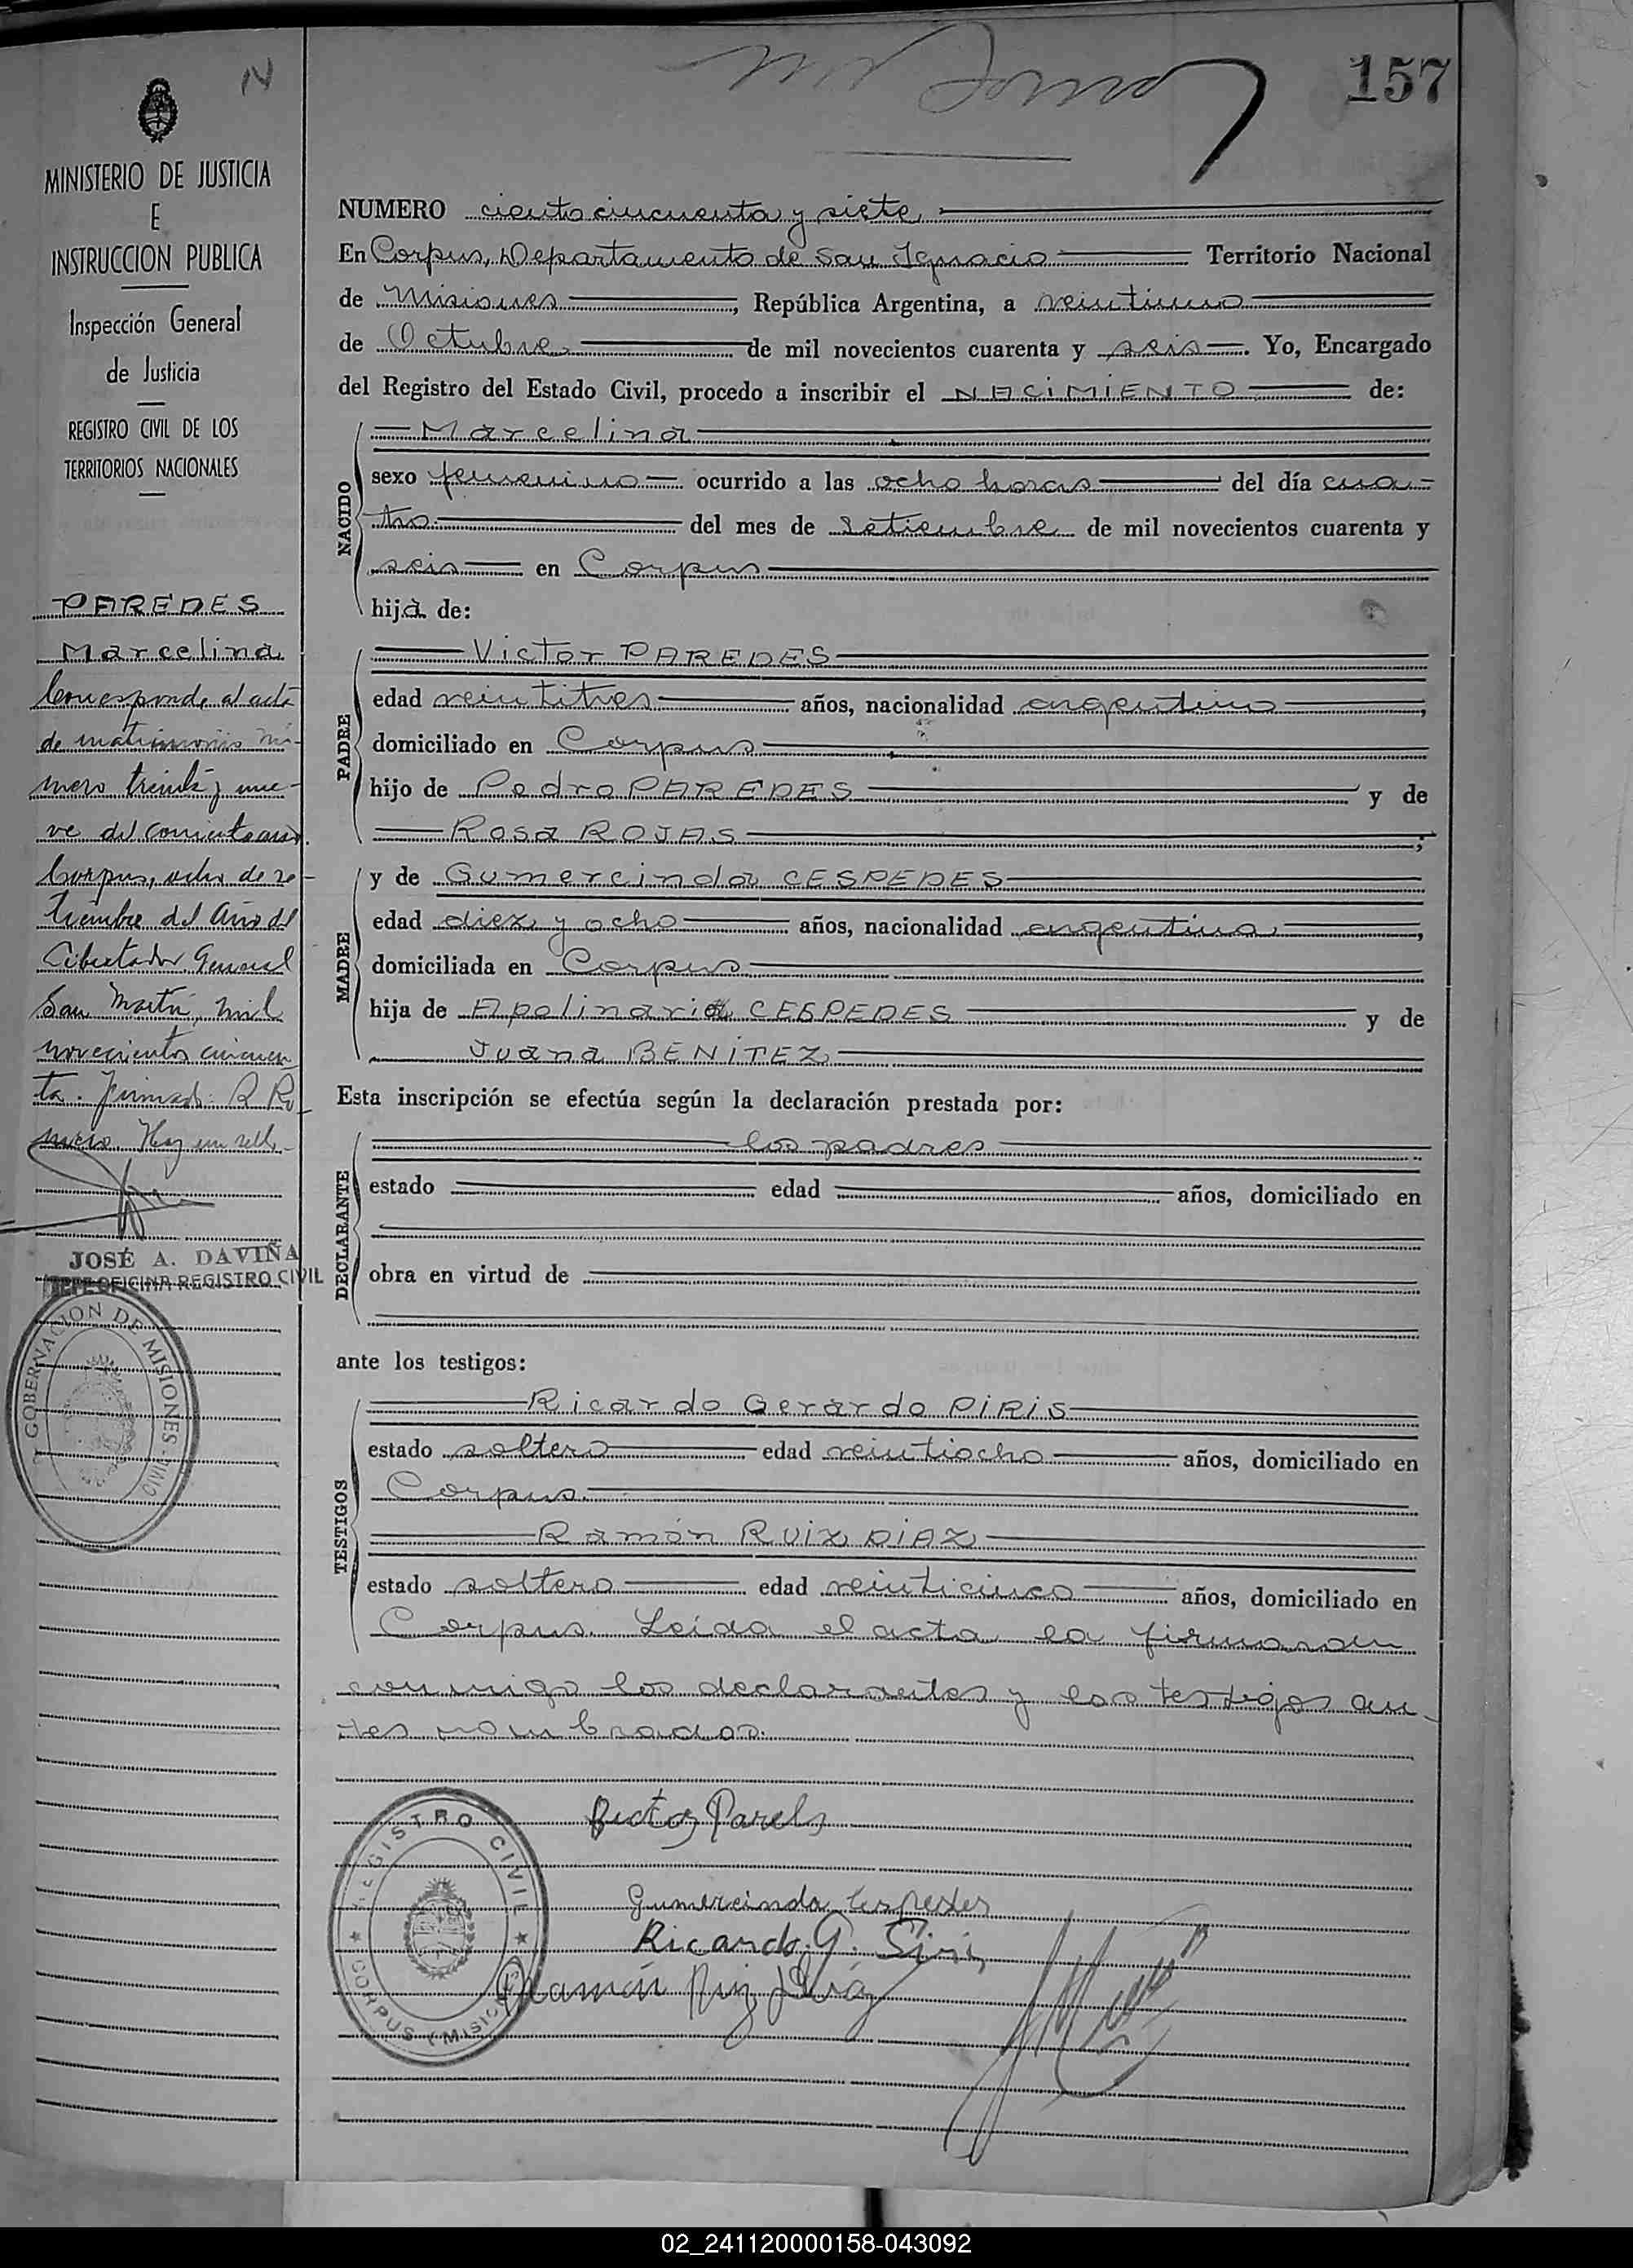 157
MINISTERIO DE JUSTICIA
E
INSTRUCCION PUBLICA
Inspección General
de Justicia
REGISTRO CIVIL DE LOS
TERRITORIOS NACIONALES
PAREDES
Marcelina
Corresponde al acta
de matrimonio nú-
mero treinta y nue-
ve del corriente año.
Corpus, ocho de se-
tiembre del Año del
Libertador General
San Martín, mil
novecientos cincuen
ta. Firmado: R. Ro-
mero. Hay un sello.-
JOSÉ A. DAVIÑA
JEFE OFICINA REGISTRO CIVIL
GOBERNACION DE MISIONES
NUMERO ciento cincuenta y siete
En Corpus, Departamento de San Ignacio Territorio Nacional
de Misiones, República Argentina, a veintiuno
de Octubre de mil novecientos cuarenta y seis. Yo, Encargado
del Registro del Estado Civil, procedo a inscribir el NACIMIENTO de:
NACIDO
Marcelina
sexo femenino ocurrido a las ocho horas del día cua-
tro del mes de Setiembre de mil novecientos cuarenta y
seis en Corpus
hija de:
PADRE
Victor PAREDES
edad veintitres años, nacionalidad argentino,
domiciliado en Corpus
hijo de Pedro PAREDES y de
Rosa ROJAS;
MADRE
y de Gumercinda CESPEDES
edad diez y ocho años, nacionalidad argentina,
domiciliada en Corpus
hija de Apolinario CESPEDES y de
Juana BENITEZ
Esta inscripción se efectúa según la declaración prestada por:
DECLARANTE
los padres
estado edad años, domiciliado en
obra en virtud de
ante los testigos:
TESTIGOS
Ricardo Gerardo PIRIS
estado soltero edad veintiocho años, domiciliado en
Corpus.
Ramón RUIZ DIAZ
estado soltero edad veinticinco años, domiciliado en
Corpus. Leida el acta la firmaran
conmigo los declarantes y los testigos an-
tes nombrados.
Gumercinda Cespedes
Ricardo G. Piris
Ramón Ruiz Diaz
REGISTRO CIVIL
CORPUS (MISIONES)
02_241120000158-043092